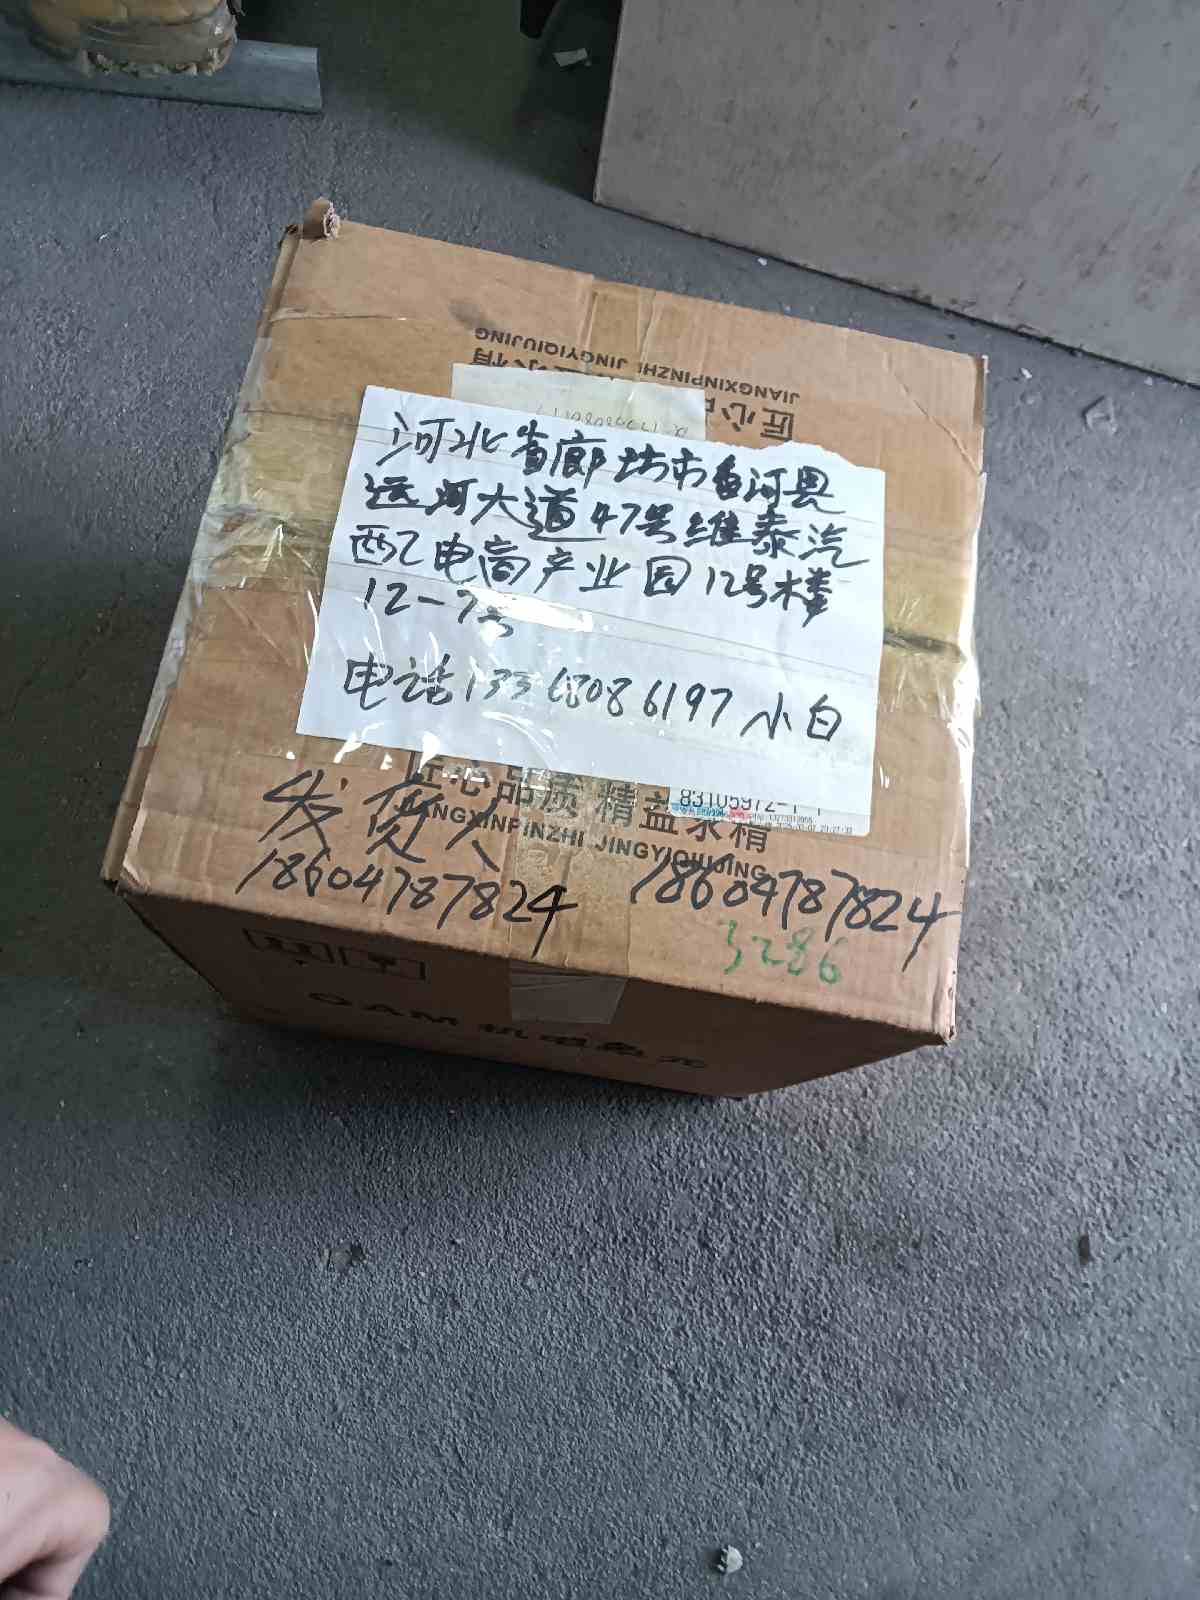 JIANGXINPINZHI JINGYIQIUJING
匠心
河北省廊坊市香河县
运河大道47号维泰汽
配电商产业园12号楼
12-7号
电话13368086197 小白
83105972-1
匠心品质 精益求精
JIANGXINPINZHI JINGYIQIUJING
发货人
18604787824 18604787824
3286
OAM 机电